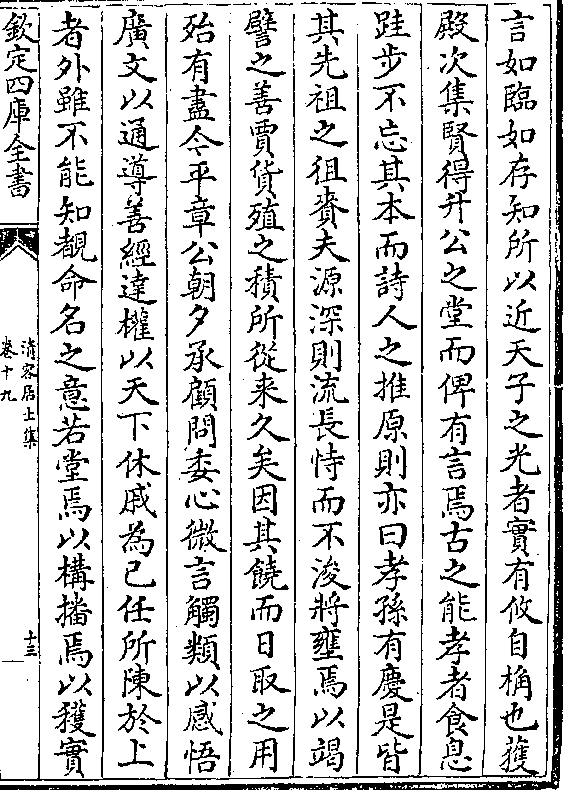 言如臨如存知所以近天子之光者實有攸自桷也獲
殿次集賢得升公之堂而俾有言焉古之能孝者食息
跬步不忘其本而詩人之推原則亦曰孝孫有慶是皆
其先祖之徂賚夫源深則流長恃而不浚將壅焉以竭
譬之善賈貨殖之積所從来久矣因其饒而日取之用
殆有盡今平章公朝夕承顧問委心微言觸類以感悟
廣文以通導善經達權以天下休戚為已任所陳於上
者外雖不能知覩命名之意若堂焉以構播焉以穫實
欽定四庫全書
清容居士集
卷十九
十三